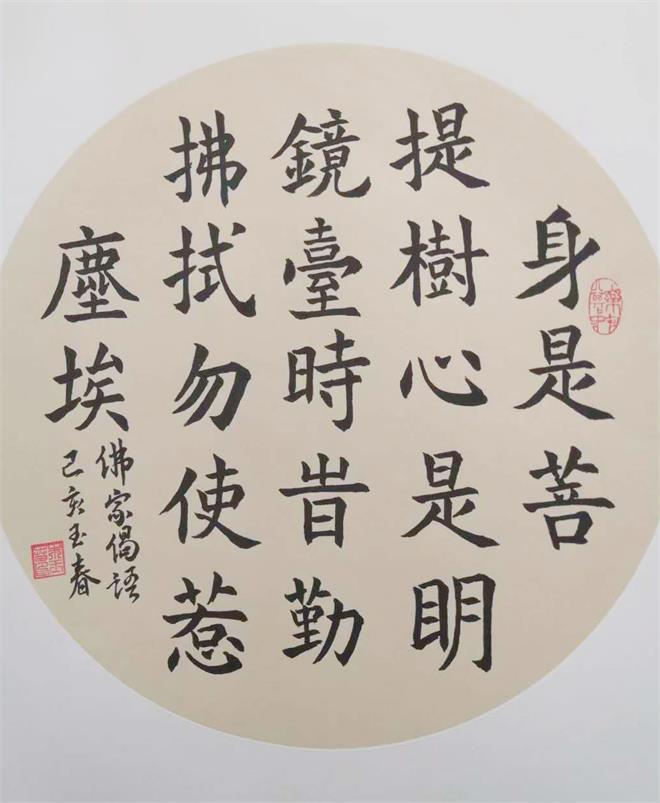 身是菩
提樹心是明
鏡臺時旹勤
拂拭勿使惹
塵埃
佛家偈語
己亥玉春